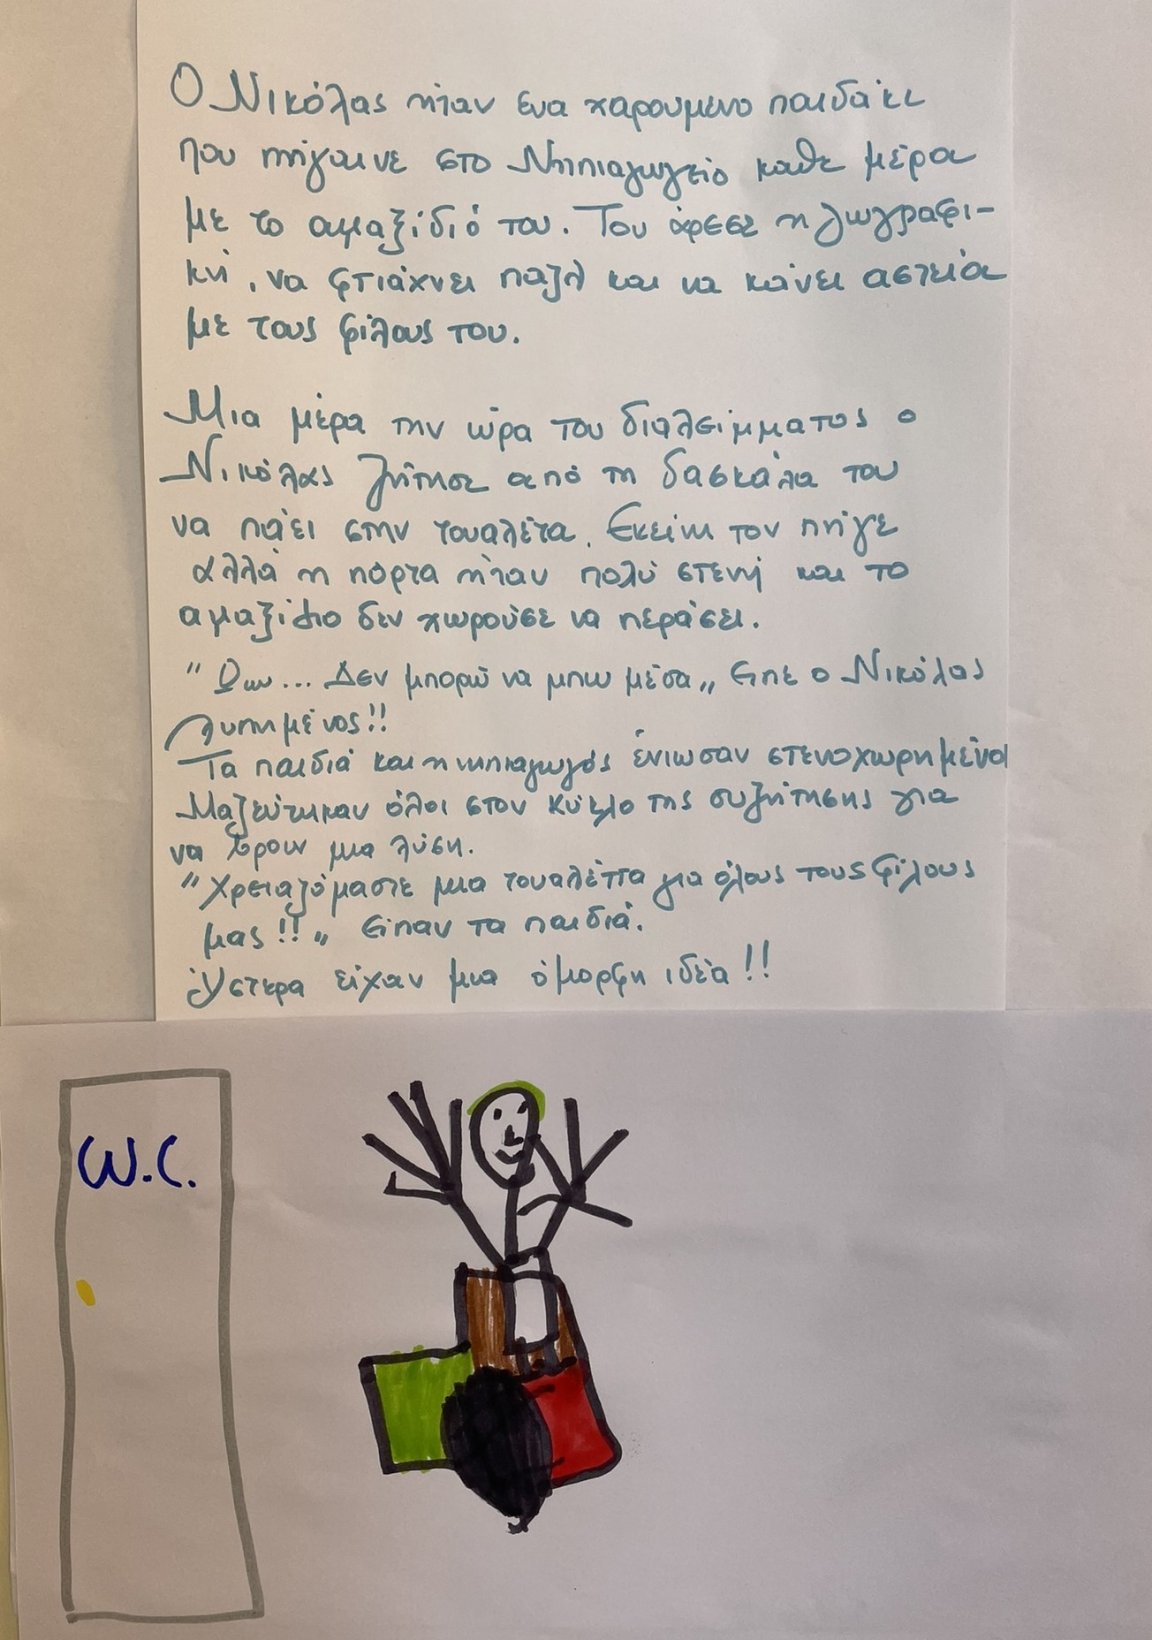 Ο Νικόλας ήταν ένα χαρούμενο παιδάκι
που πήγαινε στο Νηπιαγωγείο καθε μέρα
με το αμαξίδιό του. Του άρεσε η ζωγραφι-
κή, να φτιάχνει παζλ και να κάνει αστεία
με τους φίλους του.
Μια μέρα την ώρα του διαλείμματος ο
Νικόλας ζήτησε από τη δασκάλα του
να πάει στην τουαλέτα. Εκείνη τον πήγε
αλλά η πόρτα ήταν πολύ στενή και το
αμαξίδιο δεν χωρούσε να περάσει.
"Ωωω... Δεν μπορώ να μπω μέσα,, είπε ο Νικόλας
λυπημένος!!
Τα παιδιά και η νηπιαγωγός ένιωσαν στενοχωρημένοι
Μαζεύτηκαν όλοι στον κύκλο της συζήτησης για
να βρουν μια λύση.
"Χρειαζόμαστε μια τουαλέττα για όλους τους φίλους
μας!!,, είπαν τα παιδιά.
Ύστερα είχαν μια όμορφη ιδέα!!
W.C.